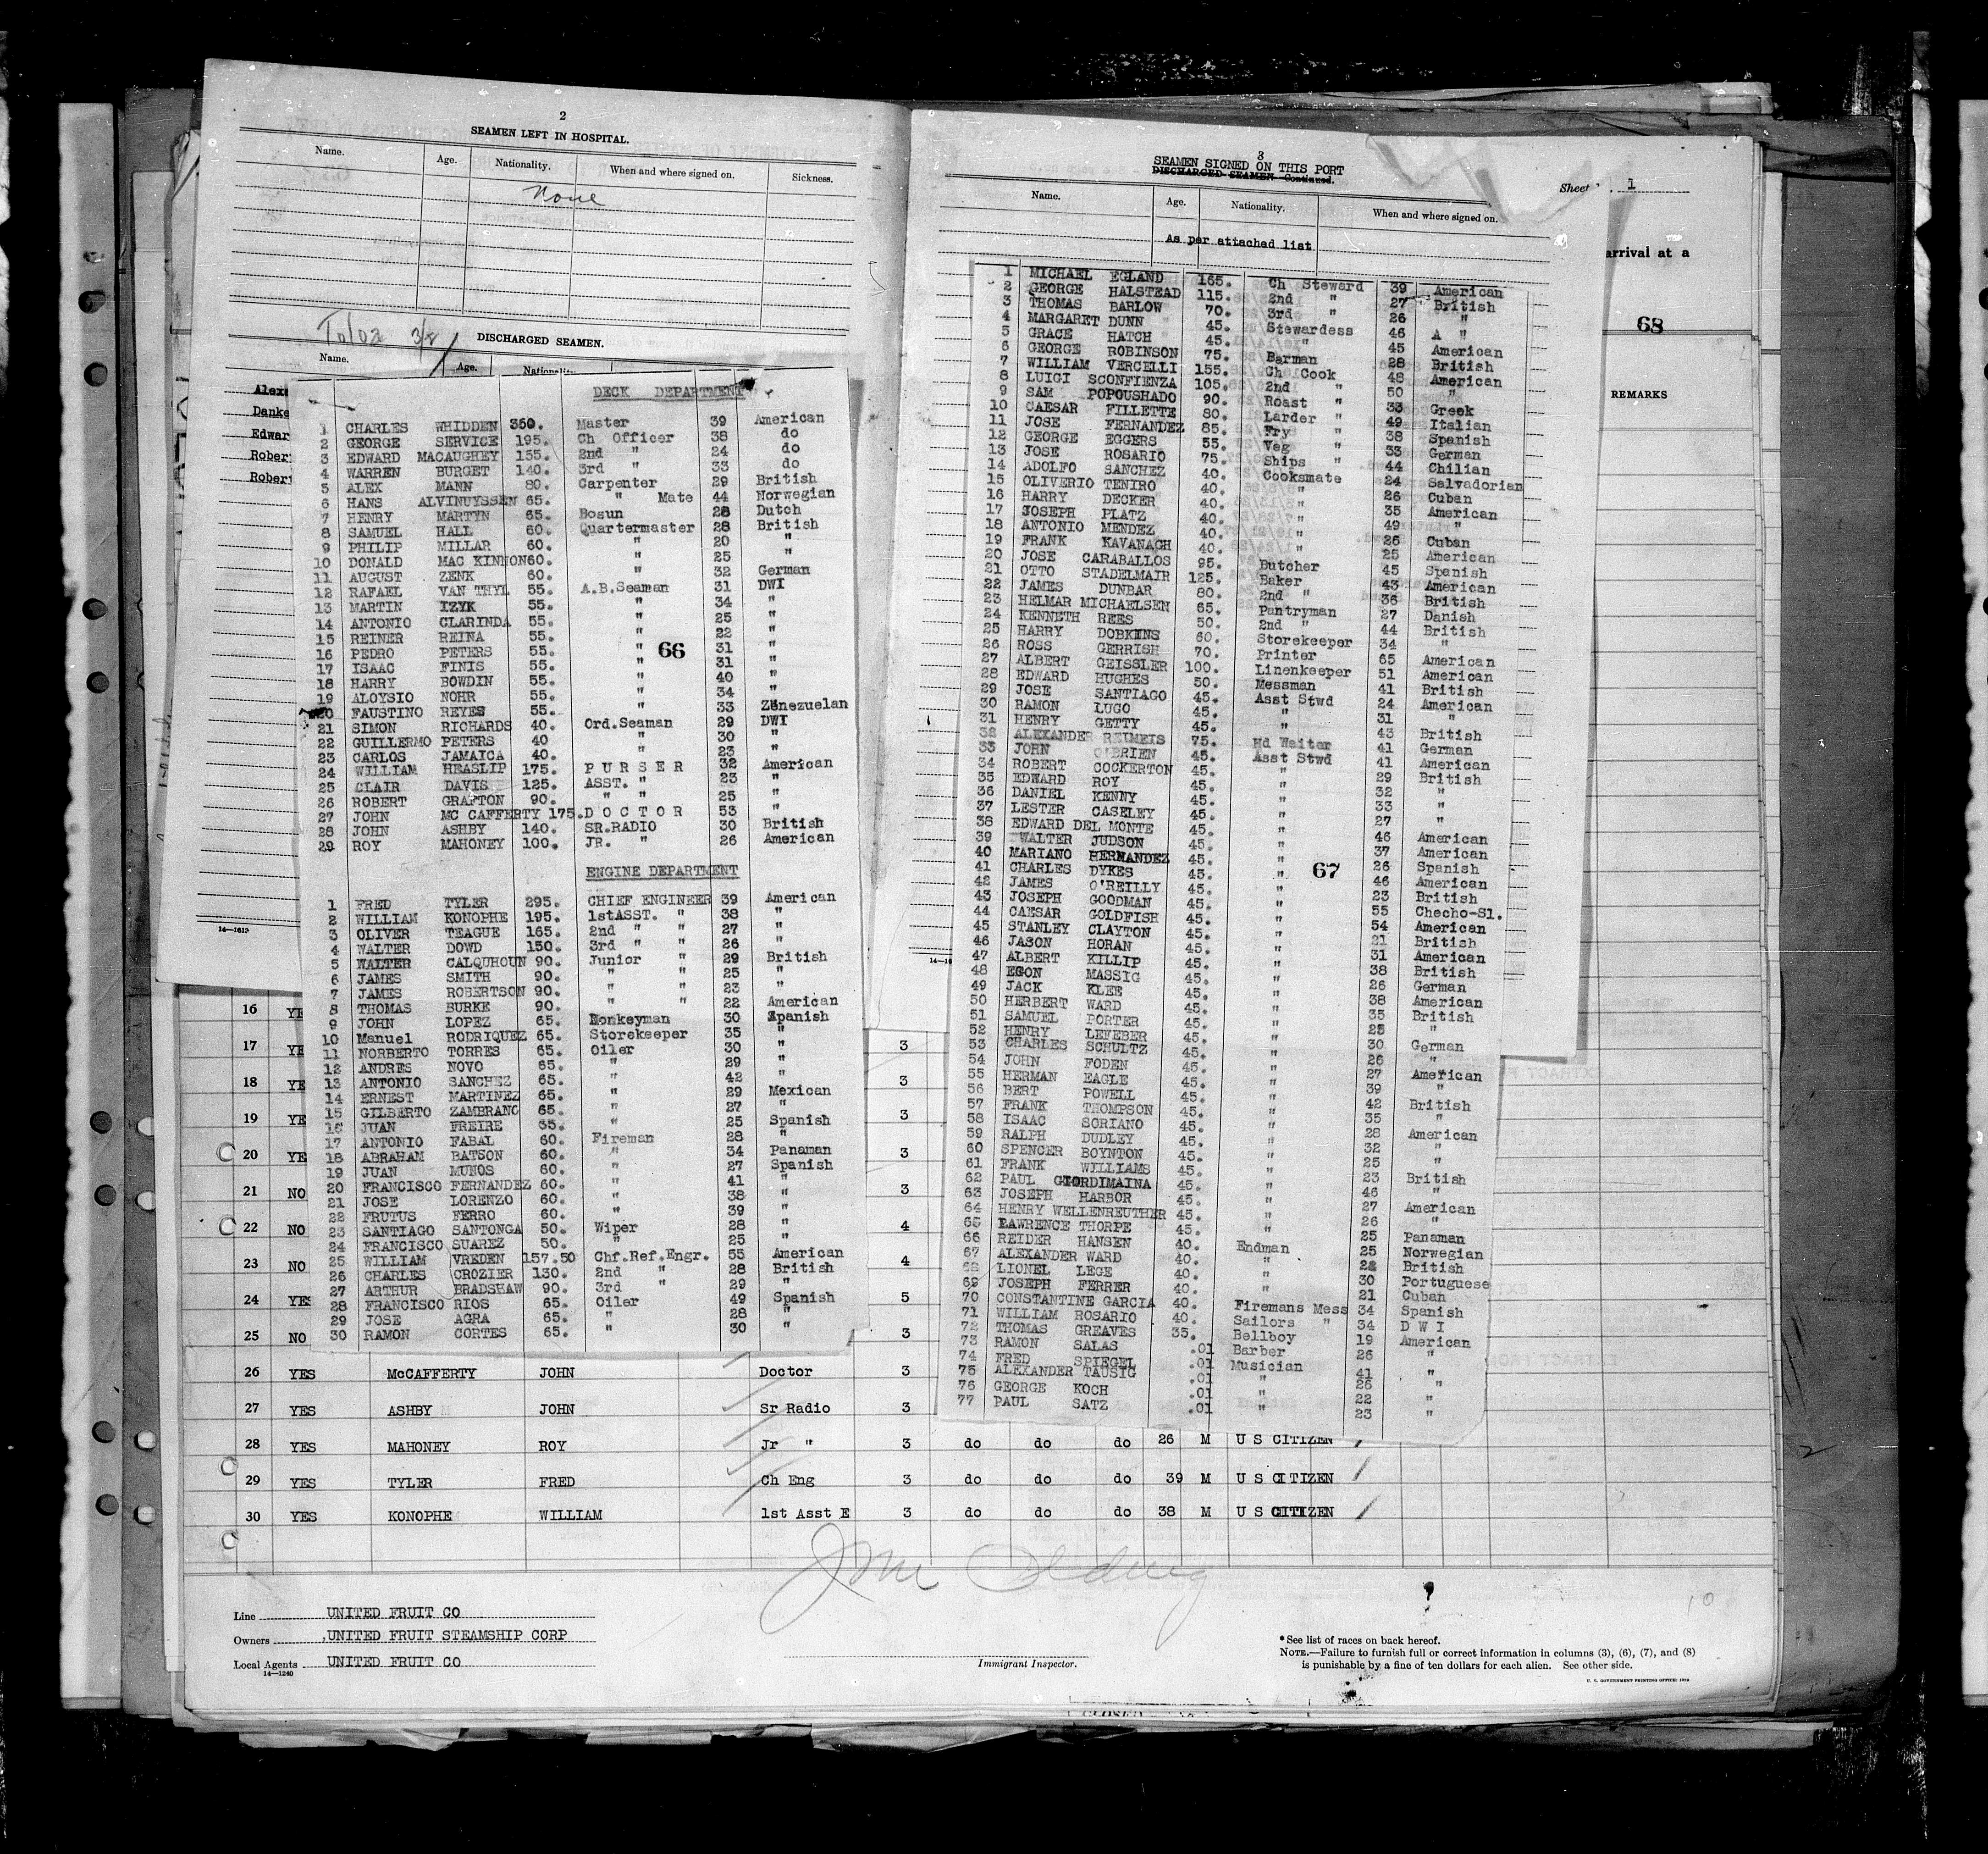 2
SEAMEN LEFT IN HOSPITAL.
Name. Age. Nationality. When and where signed on. Sickness.
None
3/8
DISCHARGED SEAMEN.
Name. Age.
Danke
Edwar
Rober
Rober
DECK DEPARTMENT
1 CHARLES WHIDDEN 350. Master 39 American
2 GEORGE SERVICE 195. Ch Officer 38 do
3 EDWARD MACAUGHEY 155. 2nd " 24 do
4 WARREN BURGET 140. 3rd " 33 do
5 ALEX MANN 80. Carpenter 29 British
6 HANS ALVINUYSSEN 65. " Mate 44 Norwegian
7 HENRY MARTYN 65. Bosun 28 Dutch
8 SAMUEL HALL 60. Quartermaster 28 British
9 PHILIP MILLAR 60. " 20 "
10 DONALD MAC KINNON 60. " 25 "
11 AUGUST ZENK 60. " 32 German
12 RAFAEL VAN THYL 55. A.B.Seaman 31 DWI
13 MARTIN IZYK 55. " 34 "
14 ANTONIO CLARINDA 55. " 25 "
15 REINER REINA 55. " 22 "
16 PEDRO PETERS 55. " 31 "
66
17 ISAAC FINIS 55. " 31 "
18 HARRY BOWDIN 55. " 40 "
19 ALOYSIO NOHR 55. " 34 "
20 FAUSTINO REYES 55. " 33 Zenezuelan
21 SIMON RICHARDS 40. Ord.Seaman 29 DWI
22 GUILLERMO PETERS 40 " 30 "
23 CARLOS JAMAICA 40. " 23 "
24 WILLIAM HEASLIP 175. PURSER 32 American
25 CLAIR DAVIS 125. ASST. " 23 "
26 ROBERT GRAFTON 90. " " 25 "
27 JOHN MC CAFFERTY 175. DOCTOR 53 "
28 JOHN ASHBY 140. SR.RADIO 30 British
29 ROY MAHONEY 100. JR. " 26 American
ENGINE DEPARTMENT
1 FRED TYLER 295. CHIEF ENGINEER 39 American
2 WILLIAM KONOPHE 195. 1stASST. " 38 "
3 OLIVER TEAGUE 165. 2nd " " 27 "
4 WALTER DOWD 150. 3rd " " 26 "
5 WALTER CALQUHOUN 90. Junior " 29 British
6 JAMES SMITH 90. " " 25 "
7 JAMES ROBERTSON 90. " " 23 "
8 THOMAS BURKE 90. " " 22 American
9 JOHN LOPEZ 65. Donkeyman 30 Spanish
10 Manuel RODRIQUEZ 65. Storekeeper 35 "
11 NORBERTO TORRES 65. Oiler 30 "
12 ANDRES NOVO 65. " 29 "
13 ANTONIO SANCHEZ 65. " 42 "
14 ERNEST MARTINEZ 65. " 29 Mexican
15 GILBERTO ZAMBRANO 65. " 27 "
16 JUAN FREIRE 65. " 25 Spanish
17 ANTONIO FABAL 60. Fireman 28 "
18 ABRAHAM BATSON 60. " 34 Panaman
19 JUAN MUNOS 60. " 27 Spanish
20 FRANCISCO FERNANDEZ 60. " 41 "
21 JOSE LORENZO 60. " 38 "
22 FRUTUS FERRO 60. " 39 "
23 SANTIAGO SANTONGA 50. Wiper 28 "
24 FRANCISCO SUAREZ 50. " 25 "
25 WILLIAM VREDEN 157.50 Chf.Ref.Engr. 55 American
26 CHARLES CROZIER 130. 2nd " 28 British
27 ARTHUR BRADSHAW 90. 3rd " 29 "
28 FRANCISCO RIOS 65. Oiler 49 Spanish
29 JOSE AGRA 65. " 28 "
30 RAMON CORTES 65. " 30 "
3
SEAMEN SIGNED ON THIS PORT
DISCHARGED SEAMEN—Continued.
Name. Age. Nationality. When and where signed on.
As per attached list
1 MICHAEL EGLAND 165. Ch Steward 39 American
2 GEORGE HALSTEAD 115. 2nd " 27 British
3 THOMAS BARLOW 70. 3rd " 26 "
4 MARGARET DUNN 45. Stewardess 46 A "
5 GRACE HATCH 45. " 45 American
6 GEORGE ROBINSON 75. Barman 28 British
7 WILLIAM VERCELLI 155. Ch Cook 48 American
8 LUIGI SCONFIENZA 105. 2nd " 50 "
9 SAM POPOUSHADO 90. Roast " 33 Greek
10 CAESAR FILLETTE 80. Larder " 49 Italian
11 JOSE FERNANDEZ 85. Fry " 38 Spanish
12 GEORGE EGGERS 55. Veg " 33 German
13 JOSE ROSARIO 75. Ships " 44 Chilian
14 ADOLFO SANCHEZ 40. Cooksmate 24 Salvadorian
15 OLIVERIO TENIRO 40. " 26 Cuban
16 HARRY DECKER 40. " 35 American
17 JOSEPH PLATZ 40. " 49 "
18 ANTONIO MENDEZ 40. " 26 Cuban
19 FRANK KAVANAGH 40. " 25 American
20 JOSE CARABALLOS 95. Butcher 45 Spanish
21 OTTO STADELMAIR 125. Baker 43 American
22 JAMES DUNBAR 80. 2nd " 36 British
23 HELMAR MICHAELSEN 65. Pantryman 27 Danish
24 KENNETH REES 50. 2nd " 44 British
25 HARRY DOBKINS 60. Storekeeper 34 "
26 ROSS GERRISH 70. Printer 65 American
27 ALBERT GEISSLER 100. Linenkeeper 51 American
28 EDWARD HUGHES 50. Messman 41 British
29 JOSE SANTIAGO 45. Asst Stwd 24 American
30 RAMON LUGO 45. " 31 "
31 HENRY GETTY 45. " 43 British
32 ALEXANDER REUMEIS 75. Hd Waiter 41 German
33 JOHN O'BRIEN 45. Asst Stwd 41 American
34 ROBERT COCKERTON 45. " 29 British
35 EDWARD ROY 45. " 32 "
36 DANIEL KENNY 45. " 33 "
37 LESTER CASELEY 45. " 27 "
38 EDWARD DEL MONTE 45. " 46 American
39 WALTER JUDSON 45. " 37 American
40 MARIANO HERNANDEZ 45. " 26 Spanish
67
41 CHARLES DYKES 45. " 46 American
42 JAMES O'REILLY 45. " 23 British
43 JOSEPH GOODMAN 45. " 55 Checho-Sl.
44 CAESAR GOLDFISH 45. " 54 American
45 STANLEY CLAYTON 45. " 21 British
46 JASON HORAN 45. " 31 American
47 ALBERT KILLIP 45. " 38 British
48 EGON MASSIG 45. " 26 German
49 JACK KLEE 45. " 38 American
50 HERBERT WARD 45. " 35 British
51 SAMUEL PORTER 45. " 25 "
52 HENRY LEFEBER 45. " 30 German
53 CHARLES SCHULTZ 45. " 26 "
54 JOHN FODEN 45. " 27 American
55 HERMAN EAGLE 45. " 39 "
56 BERT POWELL 45. " 42 British
57 FRANK THOMPSON 45. " 35 "
58 ISAAC SORIANO 45. " 28 American
59 RALPH DUDLEY 45. " 32 "
60 SPENCER BOYNTON 45. " 25 "
61 FRANK WILLIAMS 45. " 23 British
62 PAUL GIORDIMAINA 45. " 46 "
63 JOSEPH HARBOR 45. " 27 American
64 HENRY WELLENREUTHER 45. " 26 "
65 LAWRENCE THORPE 45. " 25 Panaman
66 REIDER HANSEN 40. Endman 25 Norwegian
67 ALEXANDER WARD 40. " 28 British
68 LIONEL LEGE 40. " 30 Portuguese
69 JOSEPH FERRER 40. " 21 Cuban
70 CONSTANTINE GARCIA 40. Firemans Mess 34 Spanish
71 WILLIAM ROSARIO 40. Sailors " 34 D W I
72 THOMAS GREAVES 35. Bellboy 19 American
73 RAMON SALAS .01 Barber 26 "
74 FRED SPIEGEL .01 Musician 41 "
75 ALEXANDER TAUSIG .01 " 26 "
76 GEORGE KOCH .01 " 22 "
77 PAUL SATZ .01 " 23 "
Sheet 1
arrival at a
68
REMARKS
14—1613
16 YE
17 YE 3
18 YE 3
19 YE 3
20 YE 3
21 NO 3
22 NO 4
23 NO 4
24 YES 5
25 NO 3
26 YES McCAFFERTY JOHN Doctor 3
27 YES ASHBY JOHN Sr Radio 3
28 YES MAHONEY ROY Jr " 3 do do do 26 M U S CITIZEN
29 YES TYLER FRED Ch Eng 3 do do do 39 M U S CITIZEN
30 YES KONOPHE WILLIAM 1st Asst E 3 do do do 38 M U S CITIZEN
Line UNITED FRUIT CO
Owners UNITED FRUIT STEAMSHIP CORP
Local Agents UNITED FRUIT CO
14—1240
Immigrant Inspector.
10
* See list of races on back hereof.
NOTE.—Failure to furnish full or correct information in columns (3), (6), (7), and (8)
is punishable by a fine of ten dollars for each alien. See other side.
U. S. GOVERNMENT PRINTING OFFICE: